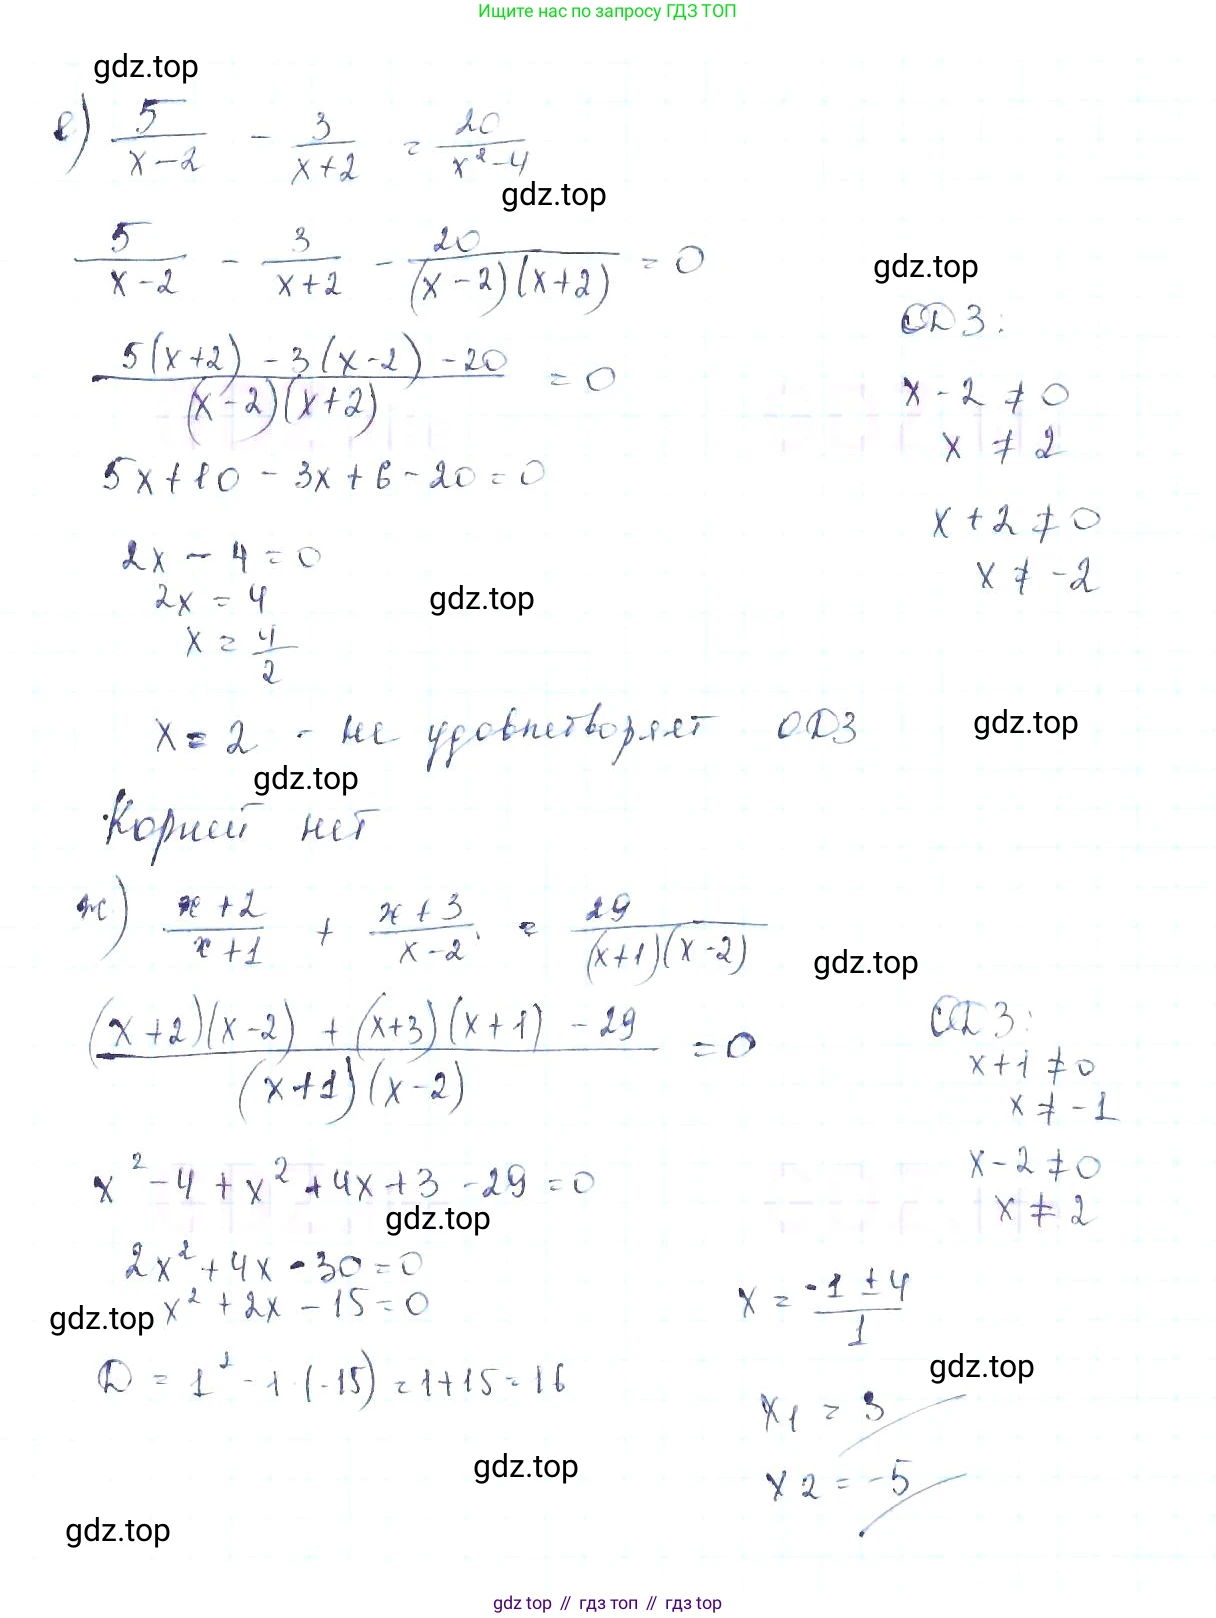 Ищите нас по запросу ГДЗ ТОП
gdz.top
е) 5/(x-2) - 3/(x+2) = 20/(x²-4)
gdz.top
5/(x-2) - 3/(x+2) - 20/((x-2)(x+2)) = 0
gdz.top
ОДЗ:
(5(x+2) - 3(x-2) - 20)/((x-2)(x+2)) = 0
x - 2 ≠ 0
x ≠ 2
5x + 10 - 3x + 6 - 20 = 0
x + 2 ≠ 0
x ≠ -2
2x - 4 = 0
2x = 4
gdz.top
x = 4/2
x = 2 - не удовлетворяет ОДЗ
gdz.top
gdz.top
Корней нет
ж) (x+2)/(x+1) + (x+3)/(x-2) = 29/((x+1)(x-2))
gdz.top
((x+2)(x-2) + (x+3)(x+1) - 29)/((x+1)(x-2)) = 0
ОДЗ:
x+1 ≠ 0
x ≠ -1
x-2 ≠ 0
x ≠ 2
x² - 4 + x² + 4x + 3 - 29 = 0
gdz.top
2x² + 4x - 30 = 0
gdz.top
x² + 2x - 15 = 0
D = 1² - 1·(-15) = 1+15 = 16
x = (-1 ± 4)/1
gdz.top
x1 = 3
x2 = -5
gdz.top
gdz.top
gdz top // гдз топ // gdz top